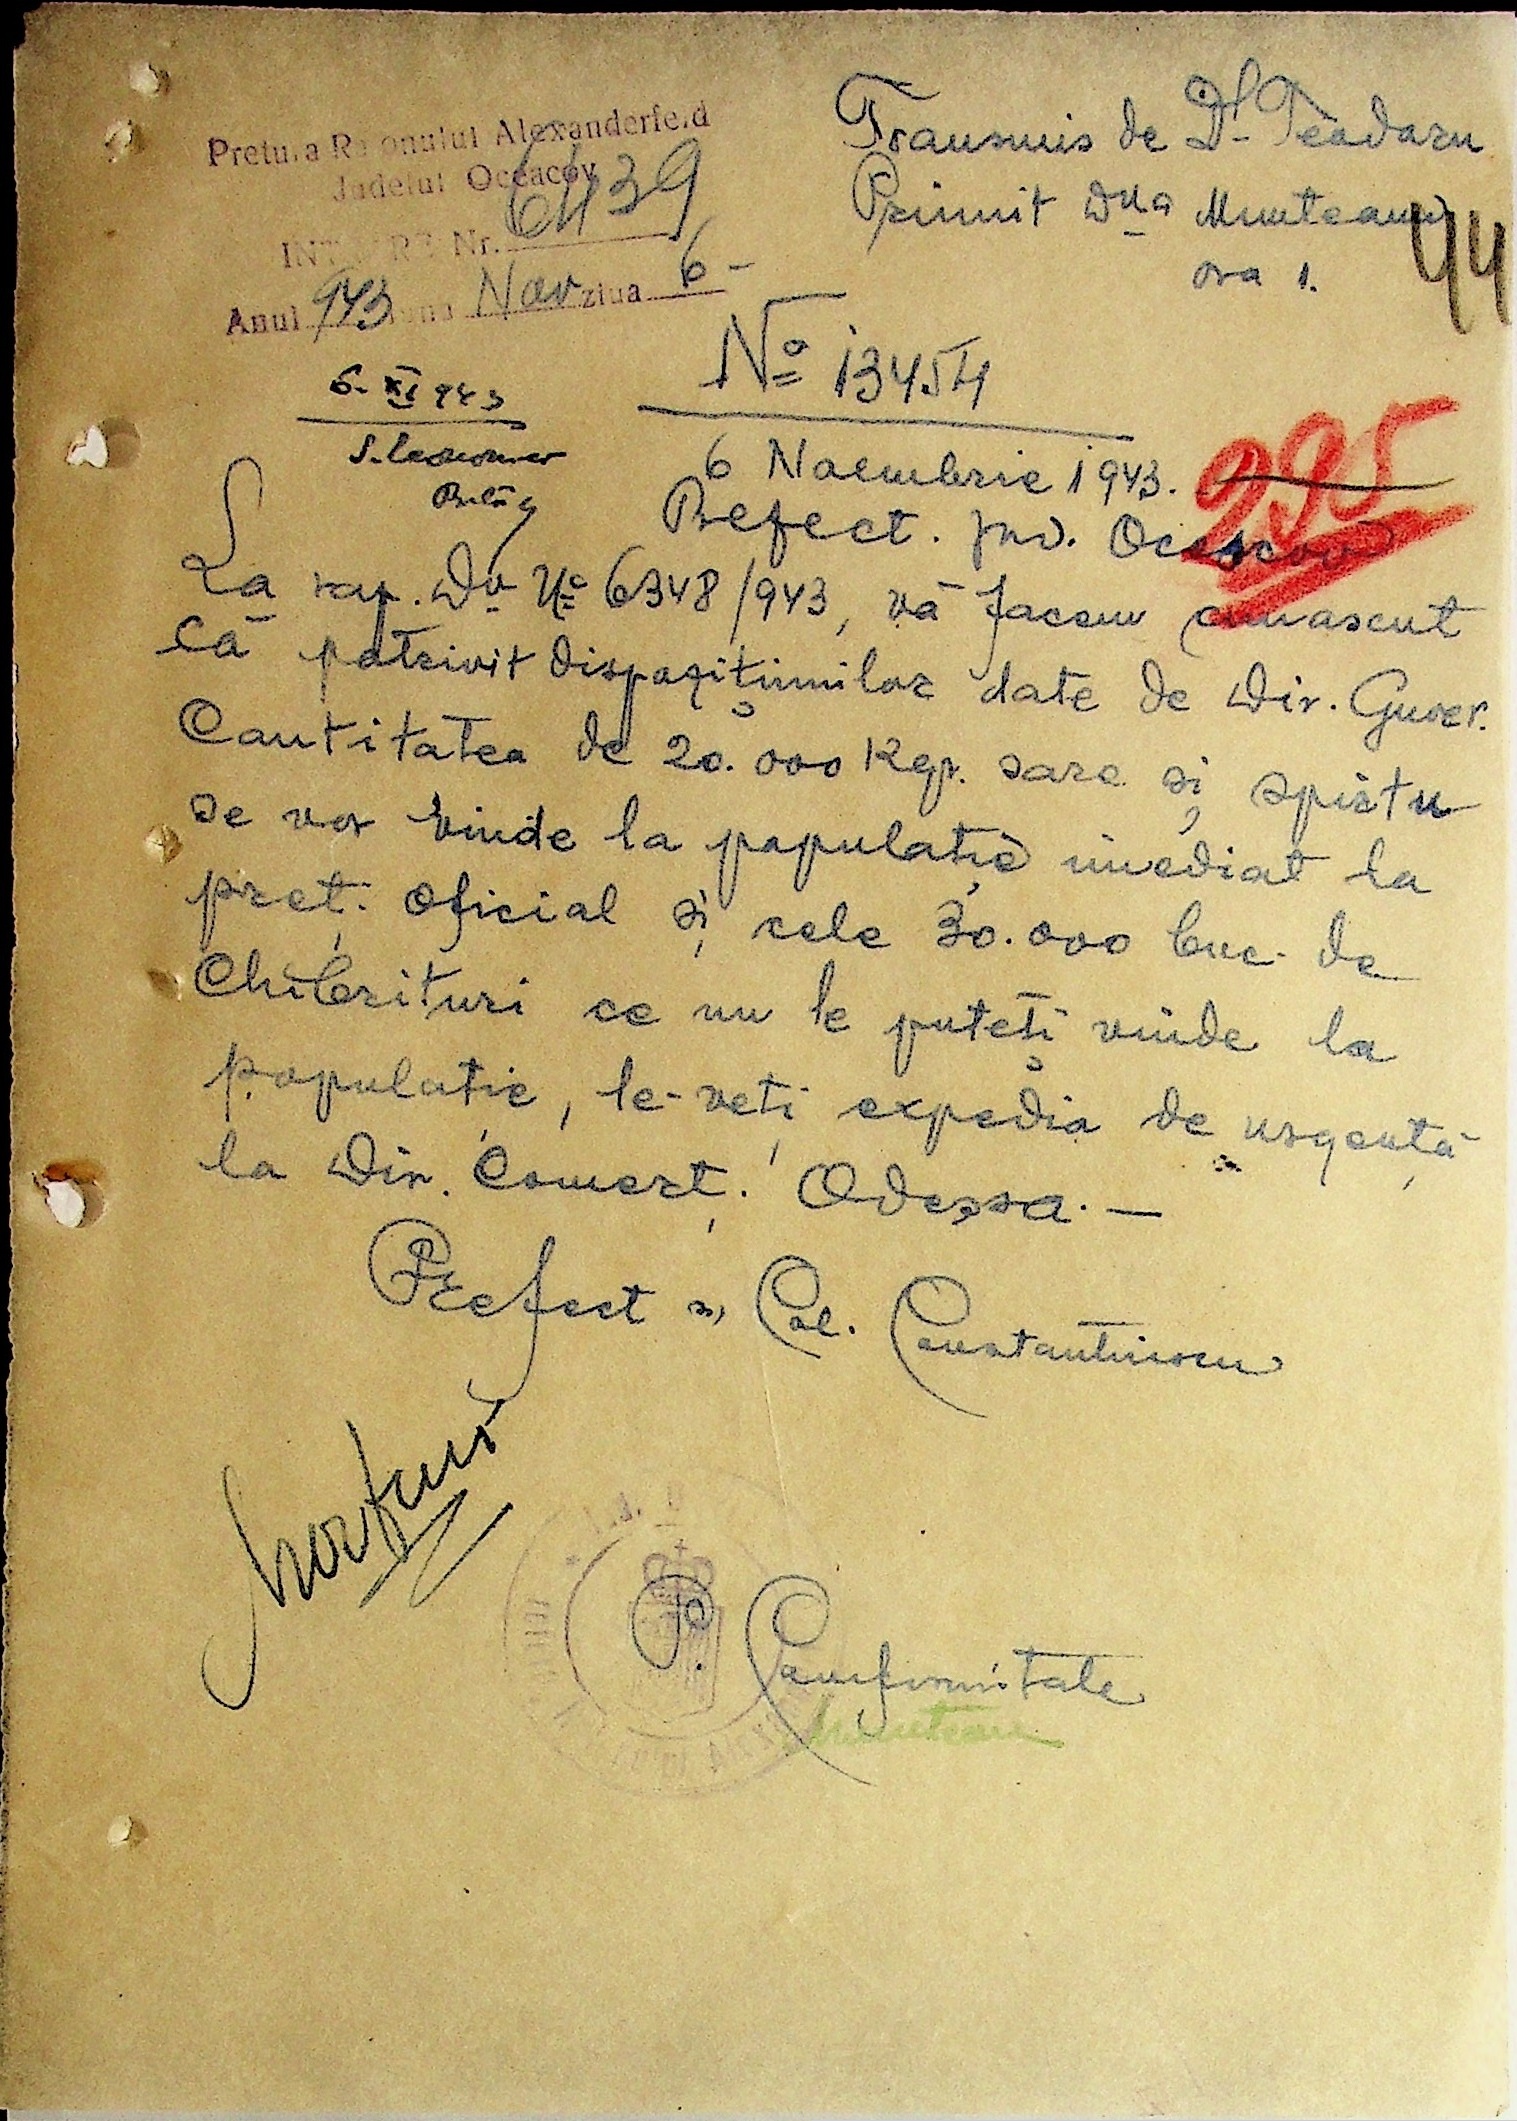 Pretura Raionului Alexanderfeld
Judetul Oceacov
INTRARE Nr. 6439
Anul 943 luna Nov ziua 6 -
Transmis de Dl Teodoru
Primit Dna Munteanu
ora 1.
44
No 13454
6. XI 943
6 Noembrie 1943.
295
Prefect. Jud. Oceacov
La rap. Dv No 6348/943, vă facem cunoscut
că potrivit dispozițiunilor date de Dir. Guver.
Cantitatea de 20.000 Kgr. sare și spirtu
se vor vinde la populație imediat la
preț. oficial și cele 30.000 buc. de
Chibrituri ce nu le puteți vinde la
populație, le-veți expedia de urgență
la Dir. Comerț. Odessa. —
Prefect ss, Col. Constantinescu
P. Conformitate
Munteanu